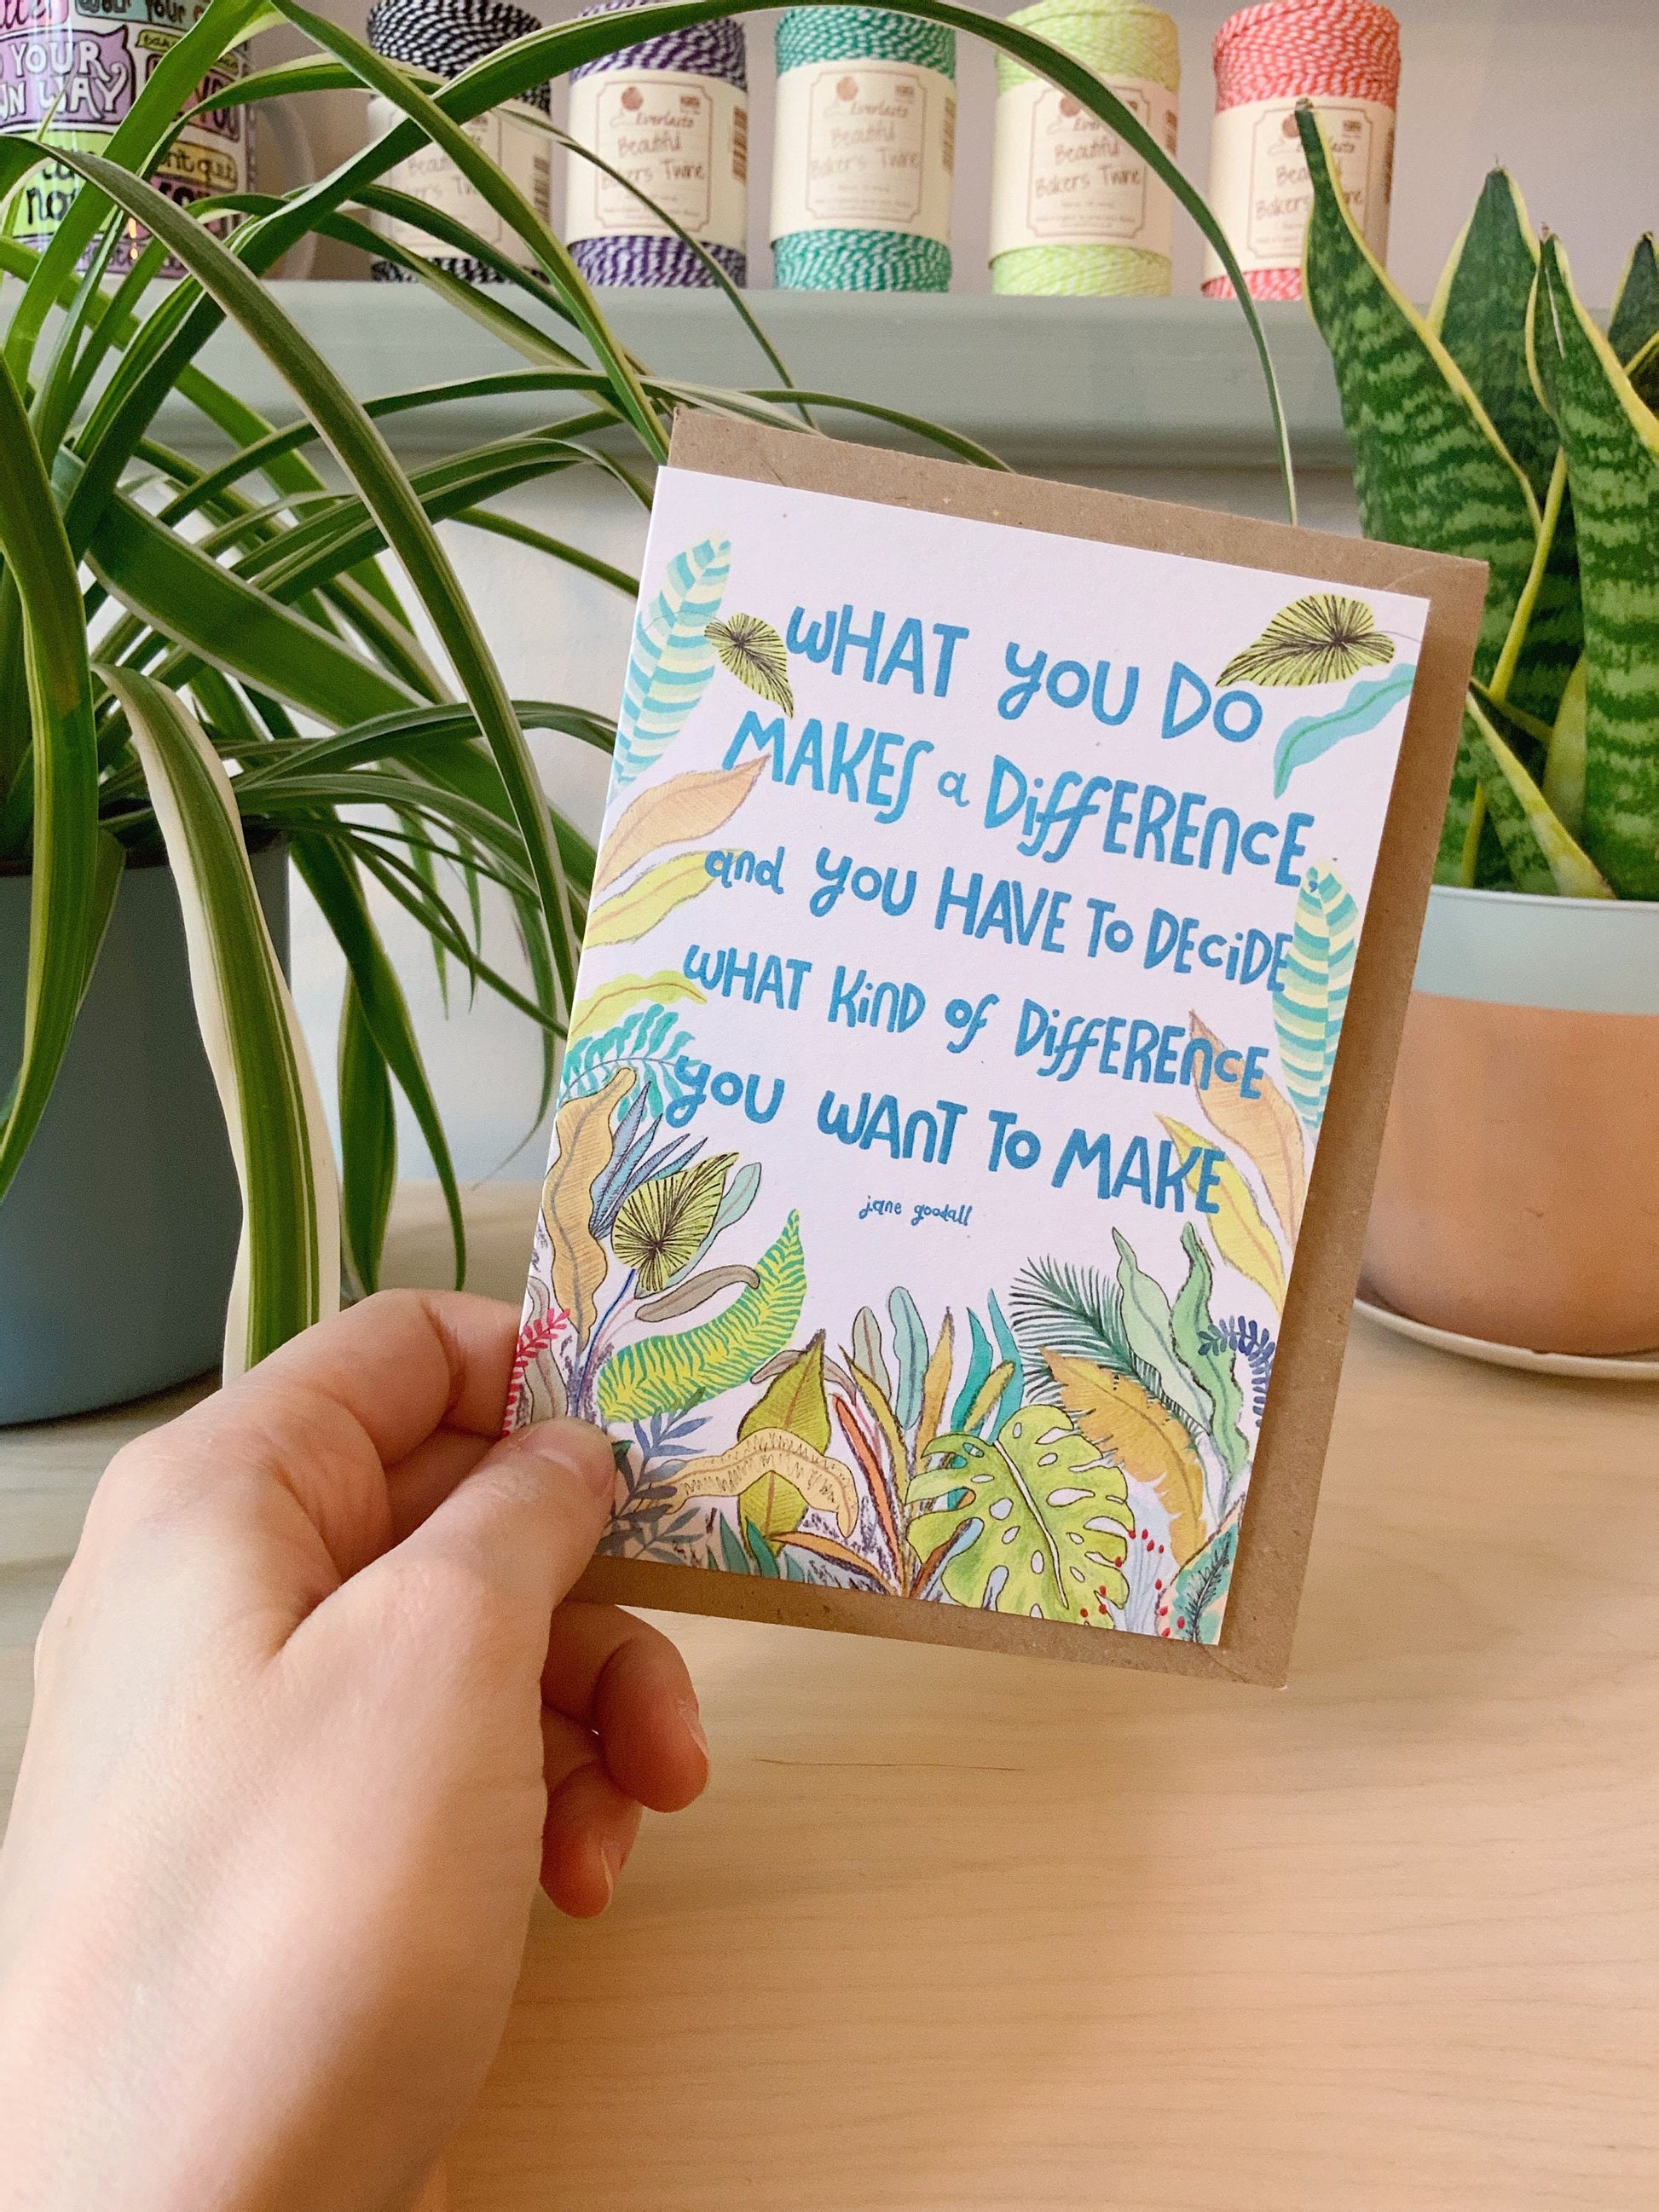 YOUR
OWN WAY
YOU
don't quit
Everlasto
Beautiful
Bakers Twine
Everlasto
Beautiful
Bakers Twine
Everlasto
Beautiful
Bakers Twine
Everlasto
Beautiful
Bakers Twine
Bakers
WHAT YOU DO
MAKES a DiffERENCE,
and YOU HAVE TO DECiDE
WHAT KiND Of DiffERENCE
YOU WANT TO MAKE
jane goodall